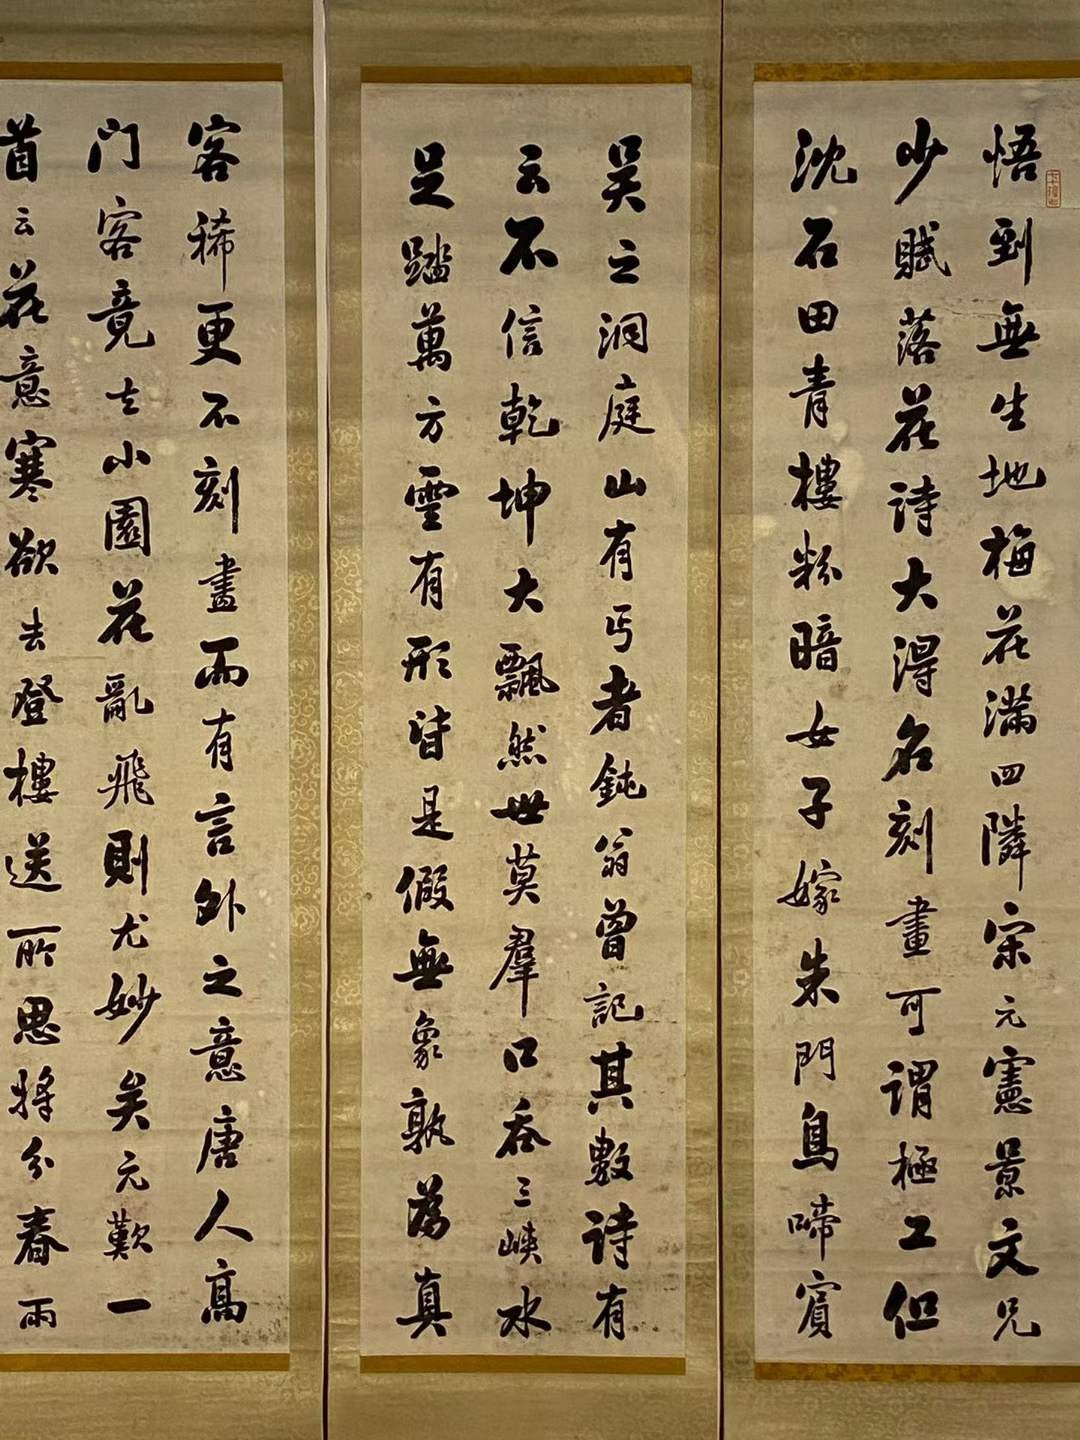 悟到無生地梅花滿四隣宋元憲景文兄
少賦落花詩大得名刻畫可謂極工但
沈石田青樓粉暗女子嫁朱門鳥啼賓
吴之洞庭山有丐者鈍翁曾記其數詩有
云不信乾坤大飄然世莫羣口吞三峽水
足踏萬方雲有形皆是假無象孰為真
客稀更不刻畫而有言外之意唐人高
门客竟去小園花亂飛則尤妙矣元歎一
首云花意寒欲去登樓送所思將分春雨